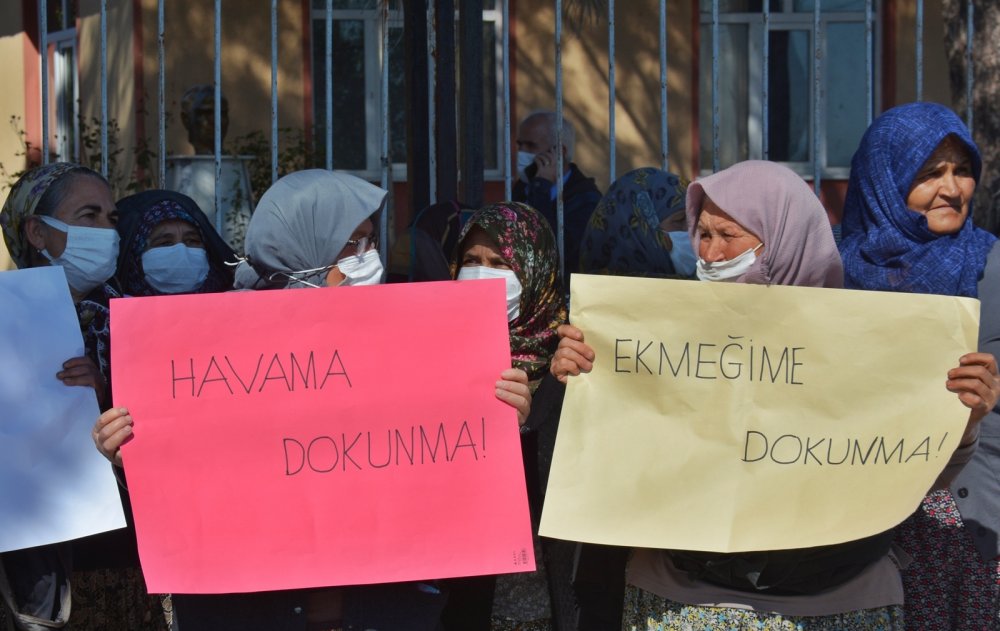 HAVAMA
DOKUNMA!
EKMEĞİME
DOKUNMA!